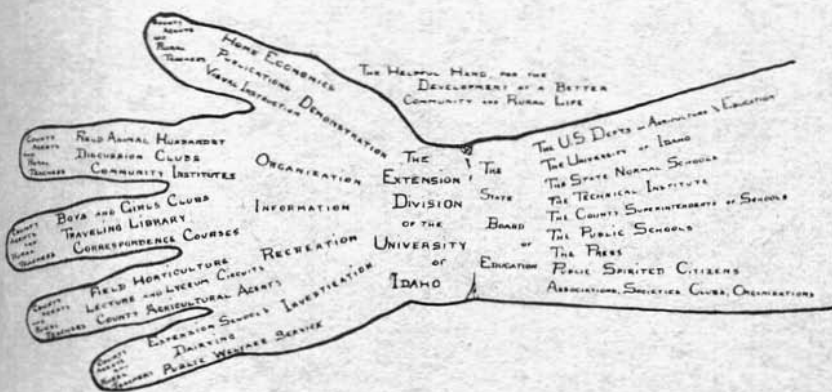 The Helpful Hand, for the
Development of a Better
Community and Rural Life
County
Agents
and
Rural
Teachers
Home Economics
Publications
Visual Instruction
Demonstration
County
Agents
and
Rural
Teachers
Field Animal Husbandry
Discussion Clubs
Community Institutes
Organization
County
Agents
and
Rural
Teachers
Boys and Girls Clubs
Traveling Library
Correspondence Courses
Information
County
Agents
and
Rural
Teachers
Field Horticulture
Lecture and Lyceum Circuits
County Agricultural Agents
Recreation
County
Agents
and
Rural
Teachers
Extension Schools
Dairying
Public Welfare Service
Investigation
The
Extension
Division
of the
University
of
Idaho
The
State
Board
of
Education
The U.S Depts of Agriculture & Education
The University of Idaho
The State Normal Schools
The Technical Institute
The County Superintendents of Schools
The Public Schools
The Press
Public Spirited Citizens
Associations, Societies Clubs, Organizations